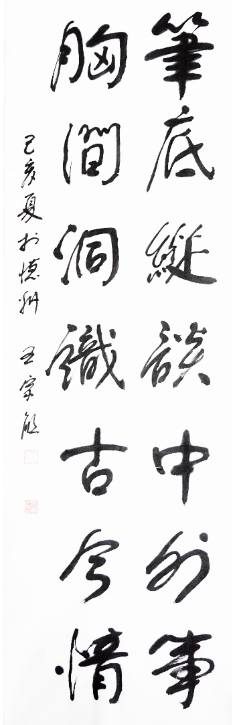 筆底縱談中外事
胸間洞識古今情
己亥夏於德州 王